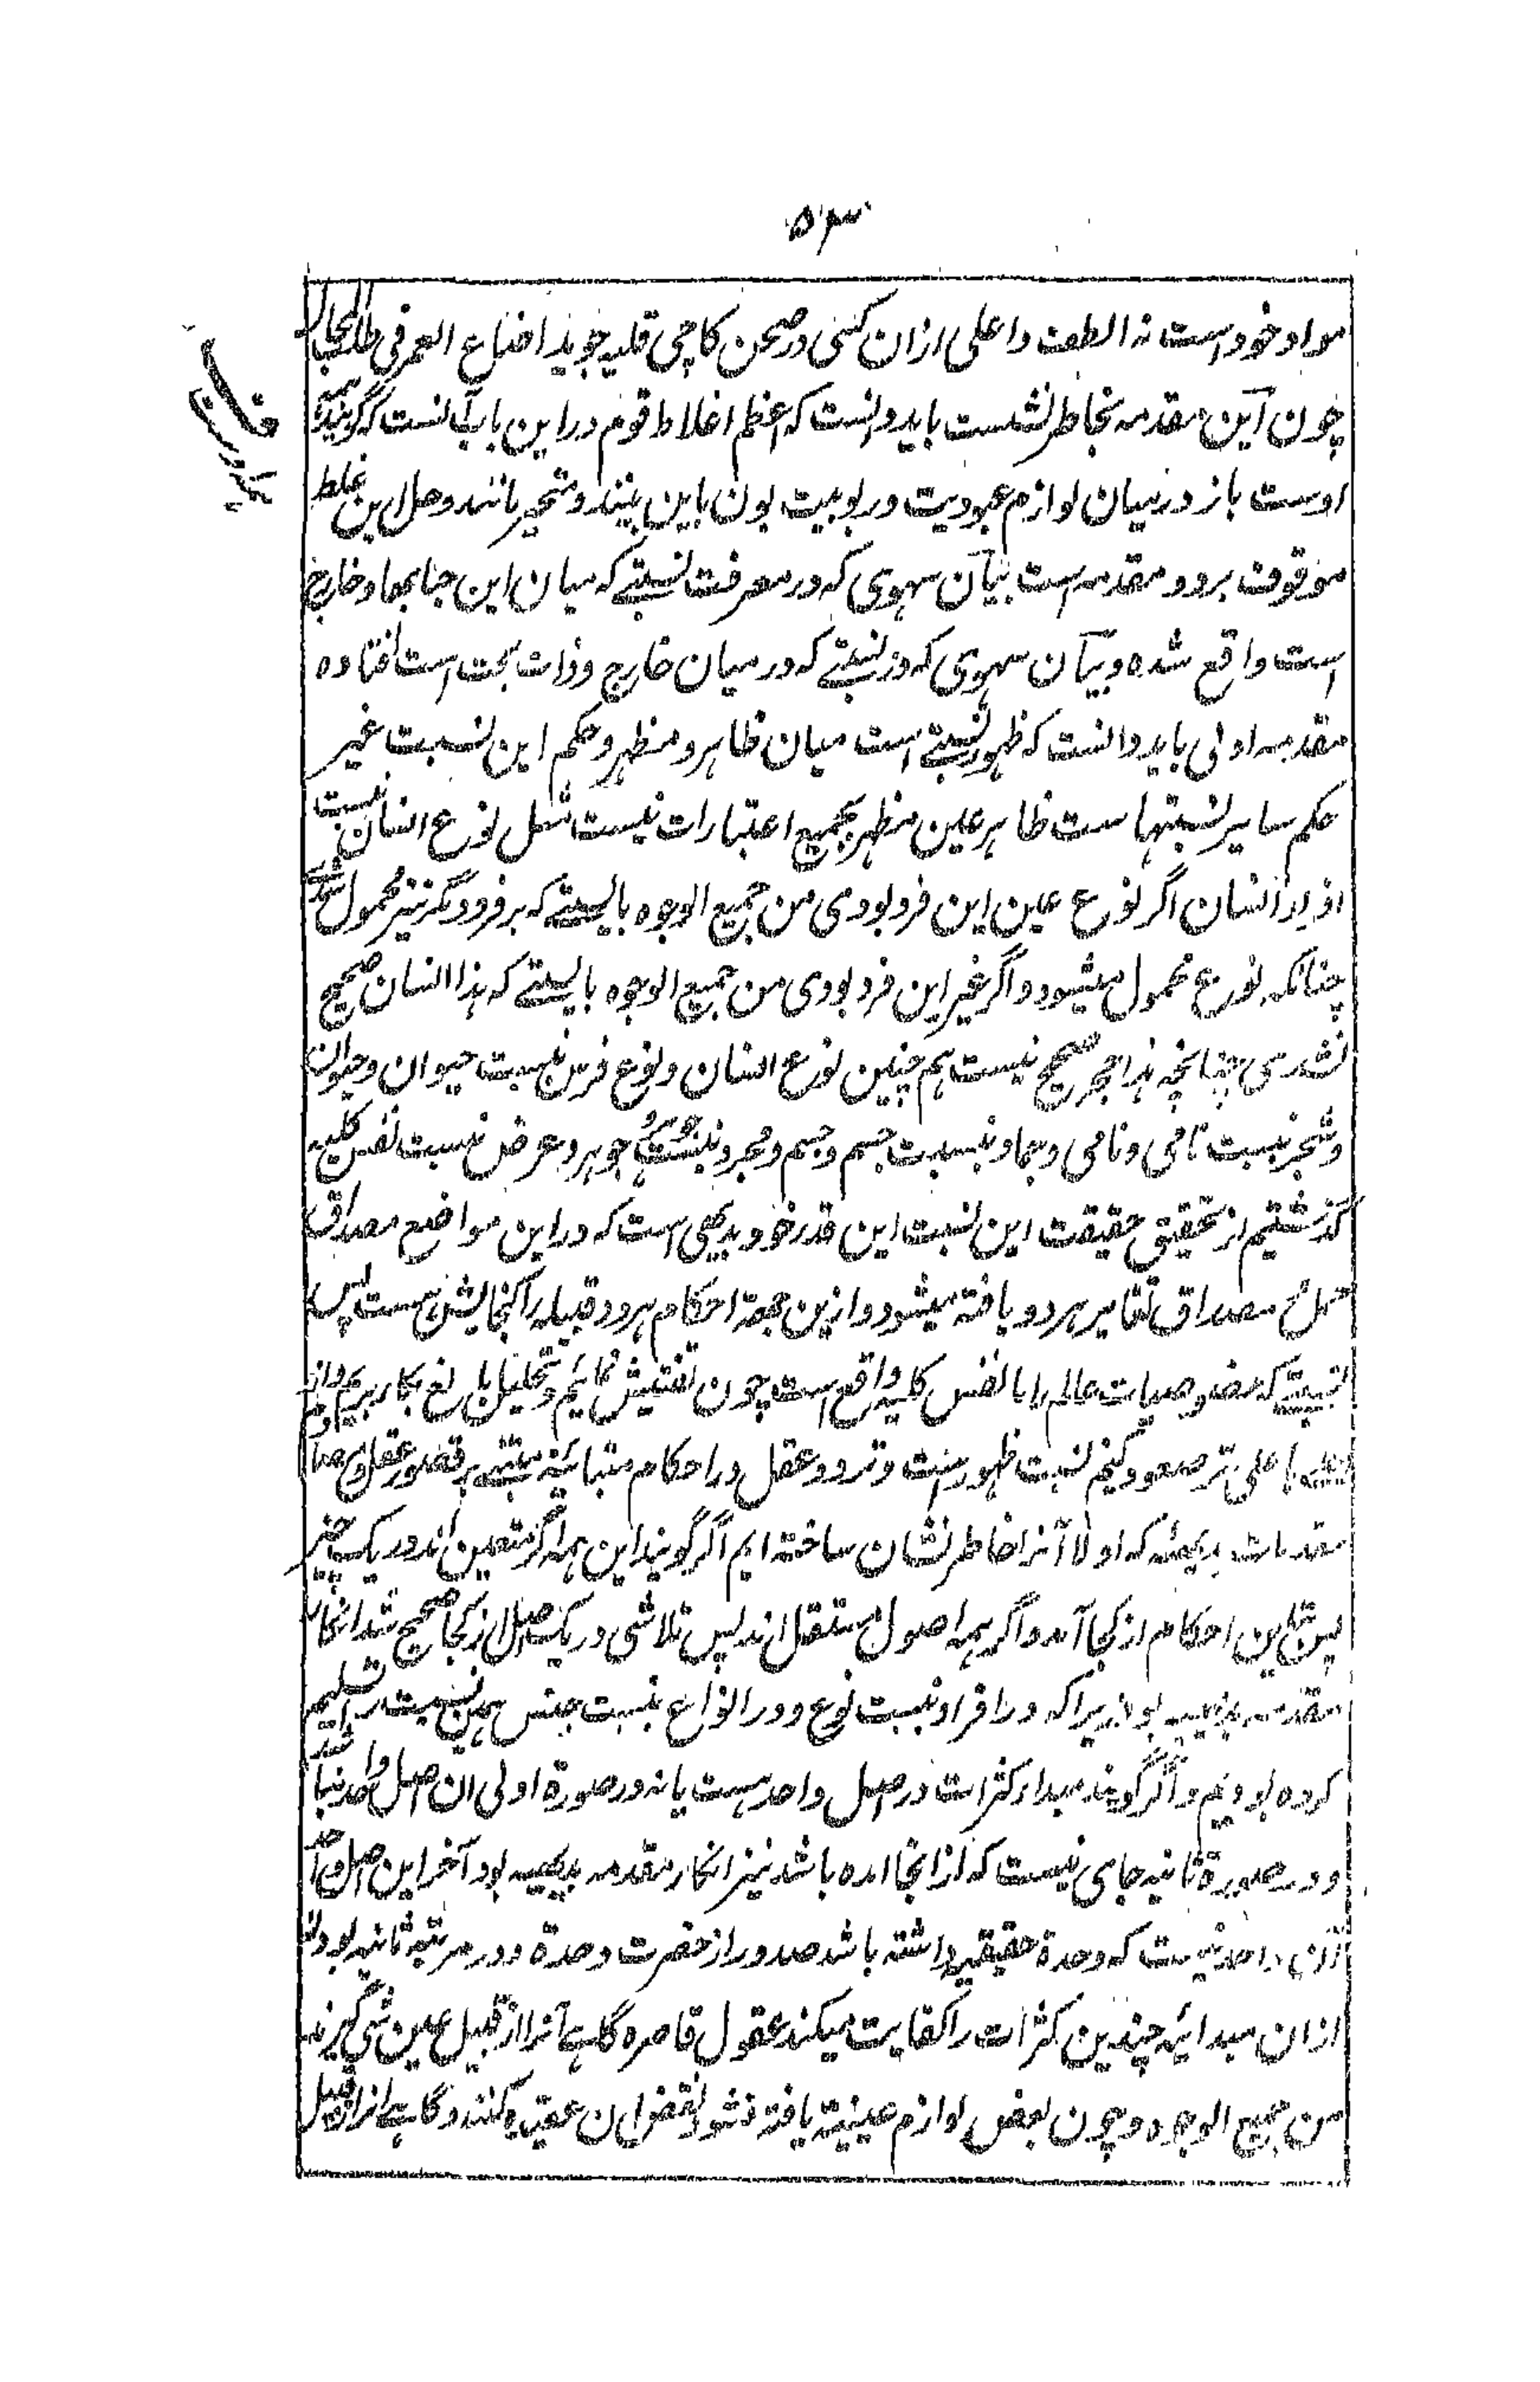 ۵۳
مواد خود است نه الطف و اعلی ازان کسی در صحن کاچی قلیه جوید اضاع العمر فی طلب المحال
چون این مقدمه بخاطر نشست باید دانست که اعظم اغلاط قوم در این باب آنست که گویند همه
اوست باز درمیان لوازم عبودیت و ربوبیت بون باین بینند و متحیر مانند و حل این غلط
موقوف بر دو مقدمه است بیان سهوی که در معرفت نسبتے که میان این جنابها و خارج
است واقع شده و بیان سهوی که در نسبتے که در میان خارج و ذات بحت است افتاده
مقدمه اولی باید دانست که ظهور نسبتے است میان ظاهر و مظهر و حکم این نسبت غیر
حکم سایر نسبتهاست ظاهر عین مظهر بجمیع اعتبارات نیست مثل نوع انسان نسبت
افراد انسان اگر نوع عین این فرد بودی من جمیع الوجوه بایستے که بر فرد دیگر نیز محمول شدے
چنانکه نوع محمول میشود و اگر غیر این فرد بودی من جمیع الوجوه بایستے که هذا انسان صحیح
نشدی چنانچه هذا حجر صحیح نیست هم چنین نوع انسان و نوع فرس نسبت حیوان و حیوان
و شجر نسبت نامی و نامی و جماد نسبت جسم و جسم و مجرد نسبت جوهر و جوهر و عرض نسبت نفس کلیه
گذشتیم از تحقیق حقیقت این نسبت این قدر خود بدیهی است که در این مواضع مصداق
حمل و مصداق تغایر هر دو یافته میشود و ازین جهة احکام هر دو قبیله را گنجایش هست پس
نسبتے که خصوصیات عالم را با نفس کلیه واقع است چون تفتیش نمائیم و تحلیل بالغ بکار بریم و از
باعلی تر صعود کنیم نسبت ظهور است و تردد عقل در احکام متبائنه مبتنے بر قصور عقل
مقدمات بدیهیه که اولا آنرا خاطر نشان ساخته ایم اگر گویند این همه اگر متعین اند در یک چیز
پس تباین احکام از کجا آمد و اگر همه اصول مستقل اند پس تلاشی در یک اصل از کجا صحیح شد
مقدمه بدیهیه بود زیرا که در افراد نسبت نوع و در انواع نسبت جنس همین نسبت را تسلیم
کرده بودیم و اگر گویند مبدا کثرات در اصل واحد هست یا نه در صورة اولی ان اصل واحد نباشد
و در صورة ثانیه جای نیست که از انجا امده باشد نیز انکار مقدمه بدیهیه بود آخر این اصل واحد
آن واحد نیست که وحدة حقیقیه داشته باشد صدور از حضرت وحدة و در مرتبه ثانیه بودن
ازان مبدائیه چندین کثرات را کفایت میکند عقول قاصره گاهے آنرا از قبیل عین شی گیرند
من جمیع الوجوه و چون بعض لوازم عینیة یافته نشود نقض ان عقیده کنند و گاهے انرا از قبیل